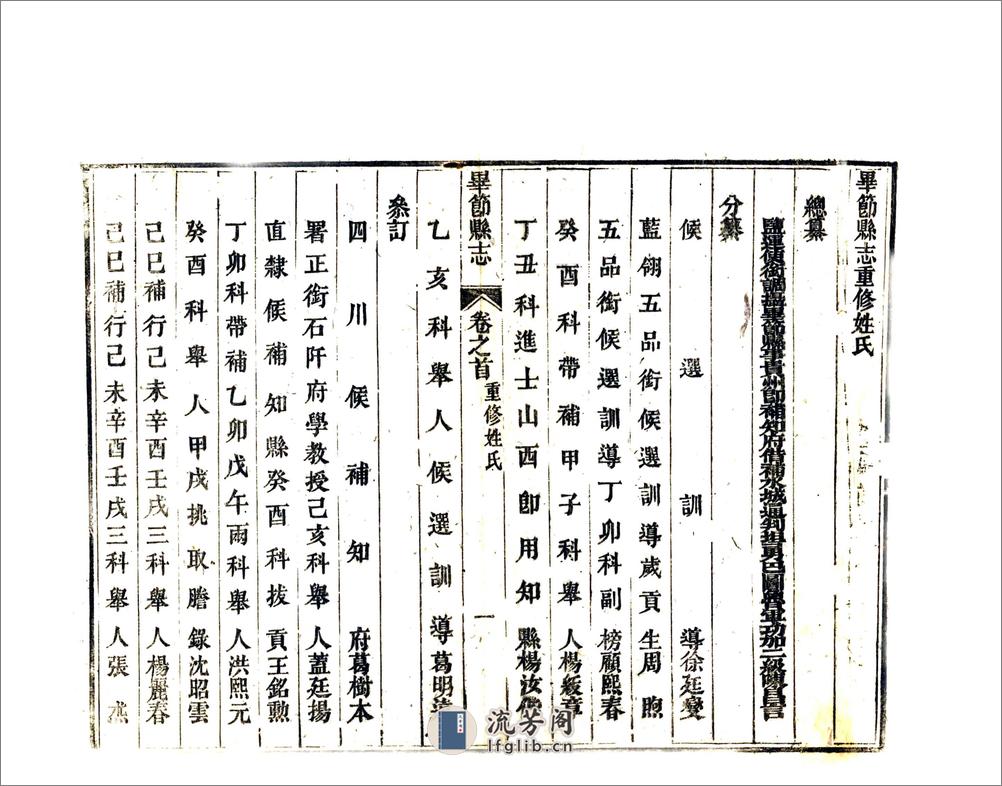 畢節縣志重修姓氏
總纂
鹽運使銜調署畢節縣事貴州即補知府借補水城通判揚勇巴圖魯軍功加二級陳昌言
分纂
候選訓導徐廷燮
藍翎五品銜候選訓導歲貢生周煦
五品銜候選訓導丁卯科副榜顧熙春
癸酉科帶補甲子科舉人楊綬章
丁丑科進士山西即用知縣楊汝偕
畢節縣志 卷之首 重修姓氏 一
乙亥科舉人候選訓導葛明
叅訂
四川候補知府葛樹本
署正銜石阡府學教授己亥科舉人蓋廷揚
直隸候補知縣癸酉科拔貢王銘勲
丁卯科帶補乙卯戊午兩科舉人洪熙元
癸酉科舉人甲戌挑取謄錄沈昭雲
己巳補行己未辛酉壬戌三科舉人楊麗春
己巳補行己未辛酉壬戌三科舉人張
流芳阁
lfglib.cn